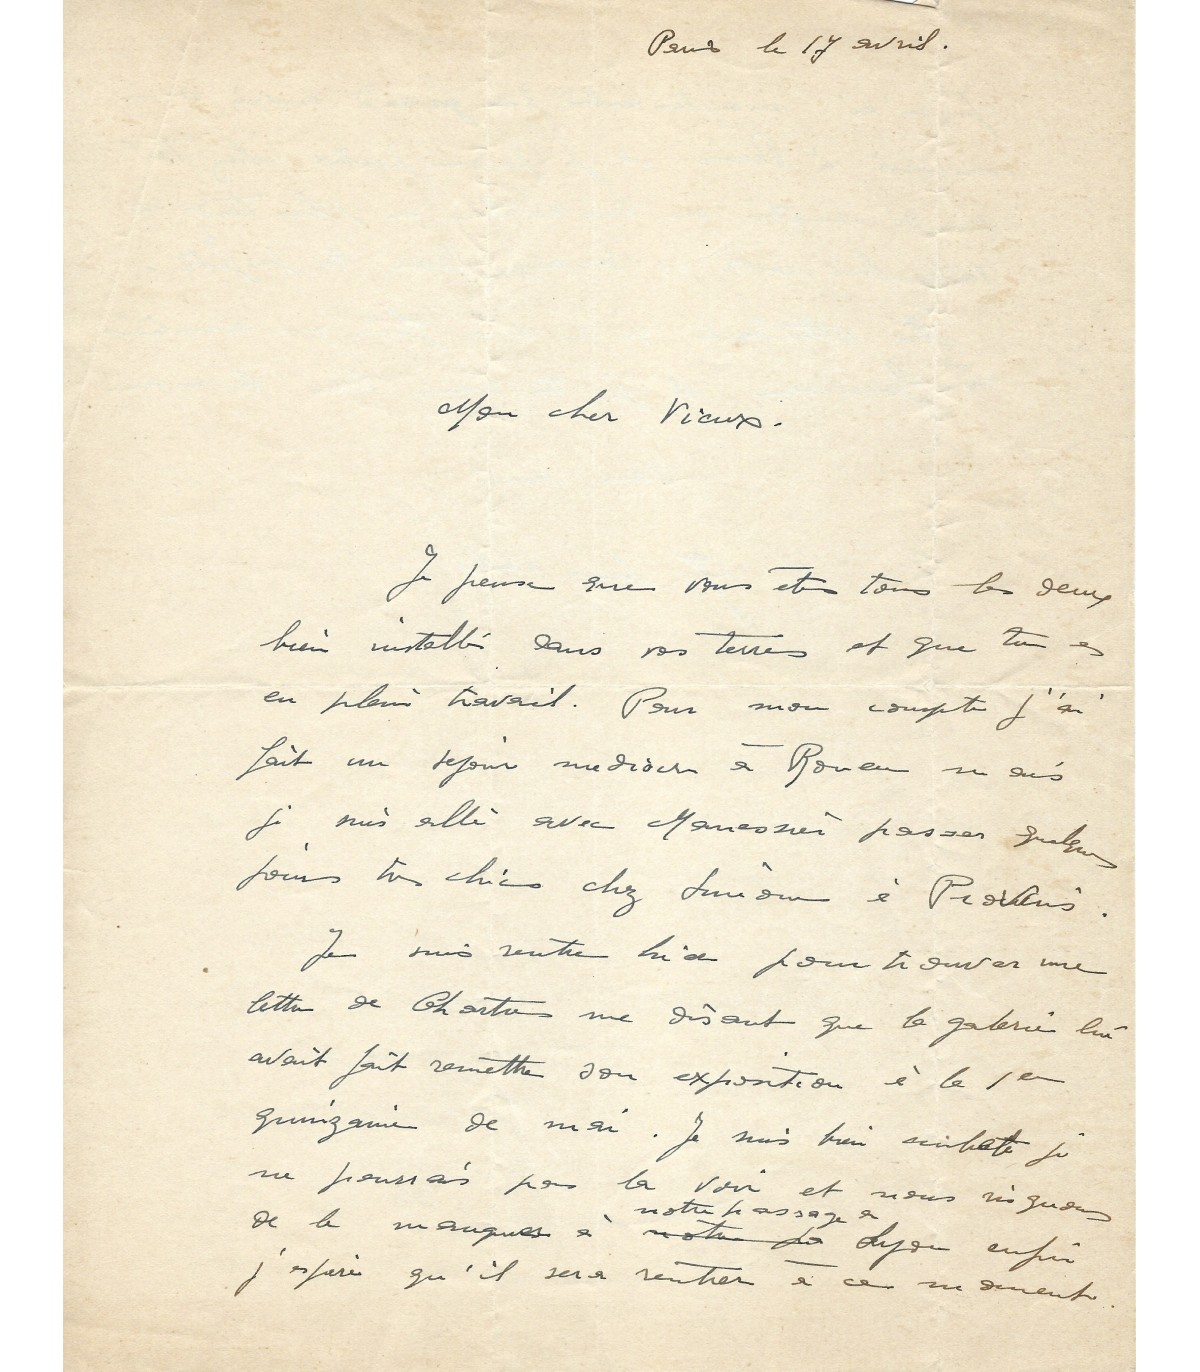 Paris le 17 avril.
Mon cher Vieux.
Je pense que vous êtes tous les deux
bien installés dans vos terres et que tu es
en plein travail. Pour mon compte j'ai
fait un sejour mediocre à Rouen mais
je suis allé avec Manessier passer quelques
jours tres chics chez à Provins.
Je suis rentre hier pour trouver une
lettre de Chartres me disant que la galerie lui
avait fait remettre son exposition à la 1er
quinzaine de mai. Je suis bien je
ne pourrais pas la voir et nous risquons
notre passage a
de le manquer à notre pa Lyon enfin
j'espère qu'il sera rentrer à ce moment.